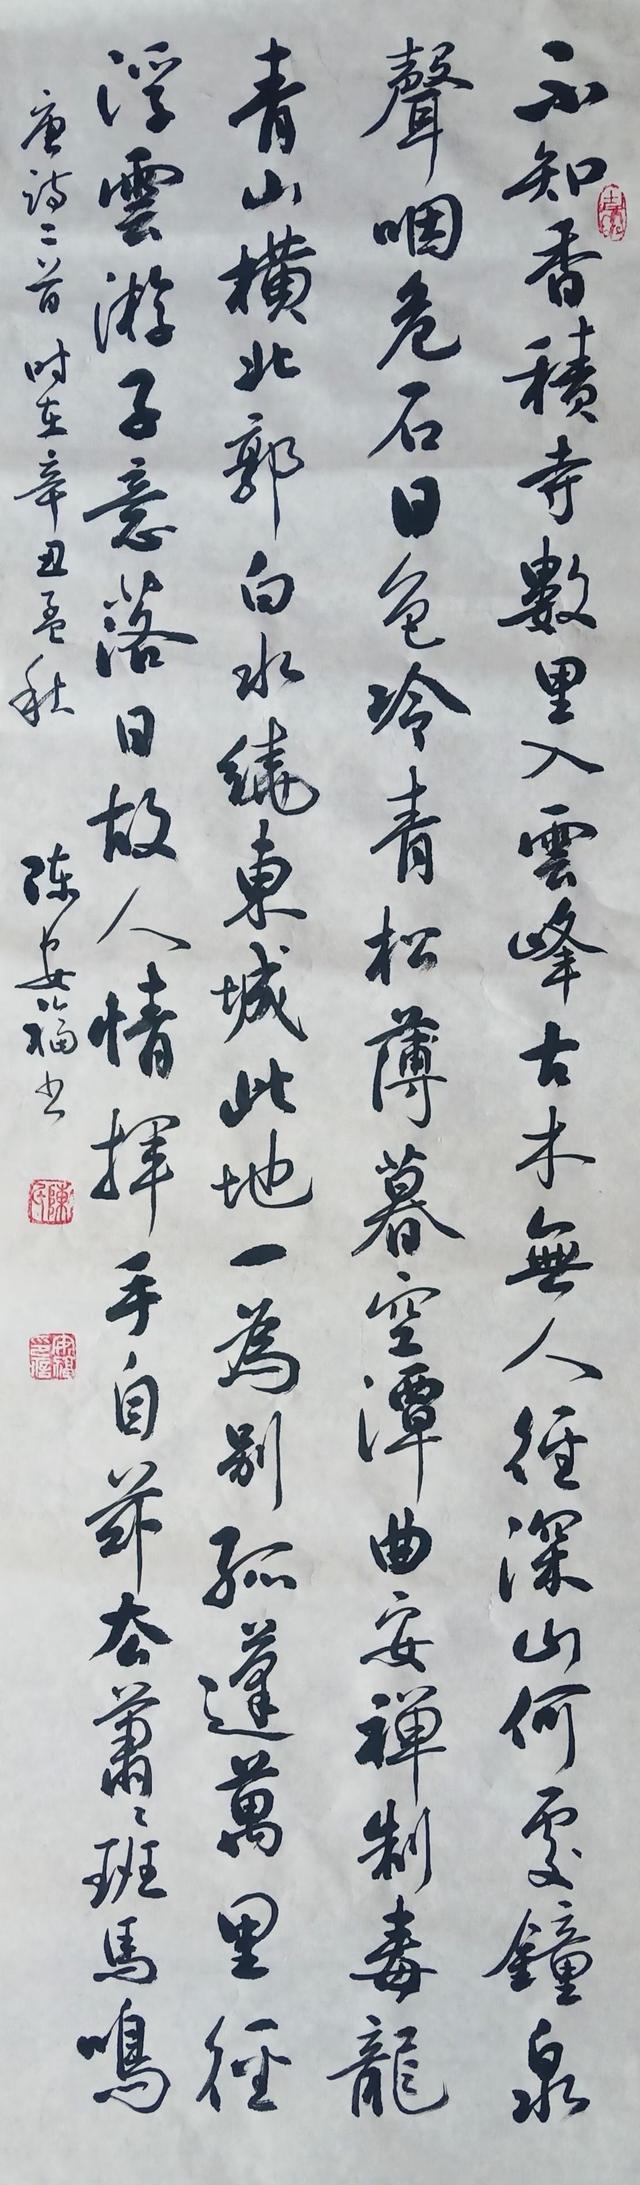 不知香積寺數里入雲峰古木無人徑深山何處鐘泉
聲咽危石日色冷青松薄暮空潭曲安禪制毒龍
青山橫北郭白水繞東城此地一為別孤蓬萬里徑
浮雲游子意落日故人情揮手自茲去蕭〻班馬鳴
唐诗二首时在辛丑孟秋
陈安福书
陳